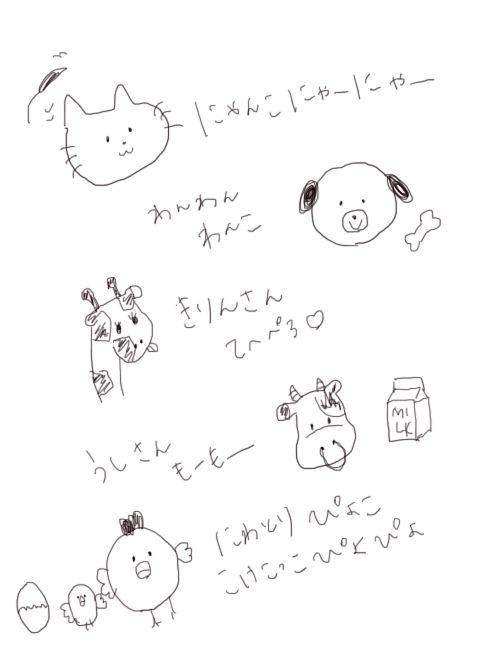 にゃんこにゃーにゃー
わんわん
わんこ
きりんさん
てへぺろ♡
うしさん
もーもー
MI
LK
にわとり ぴよこ
こけこっこぴよぴよ